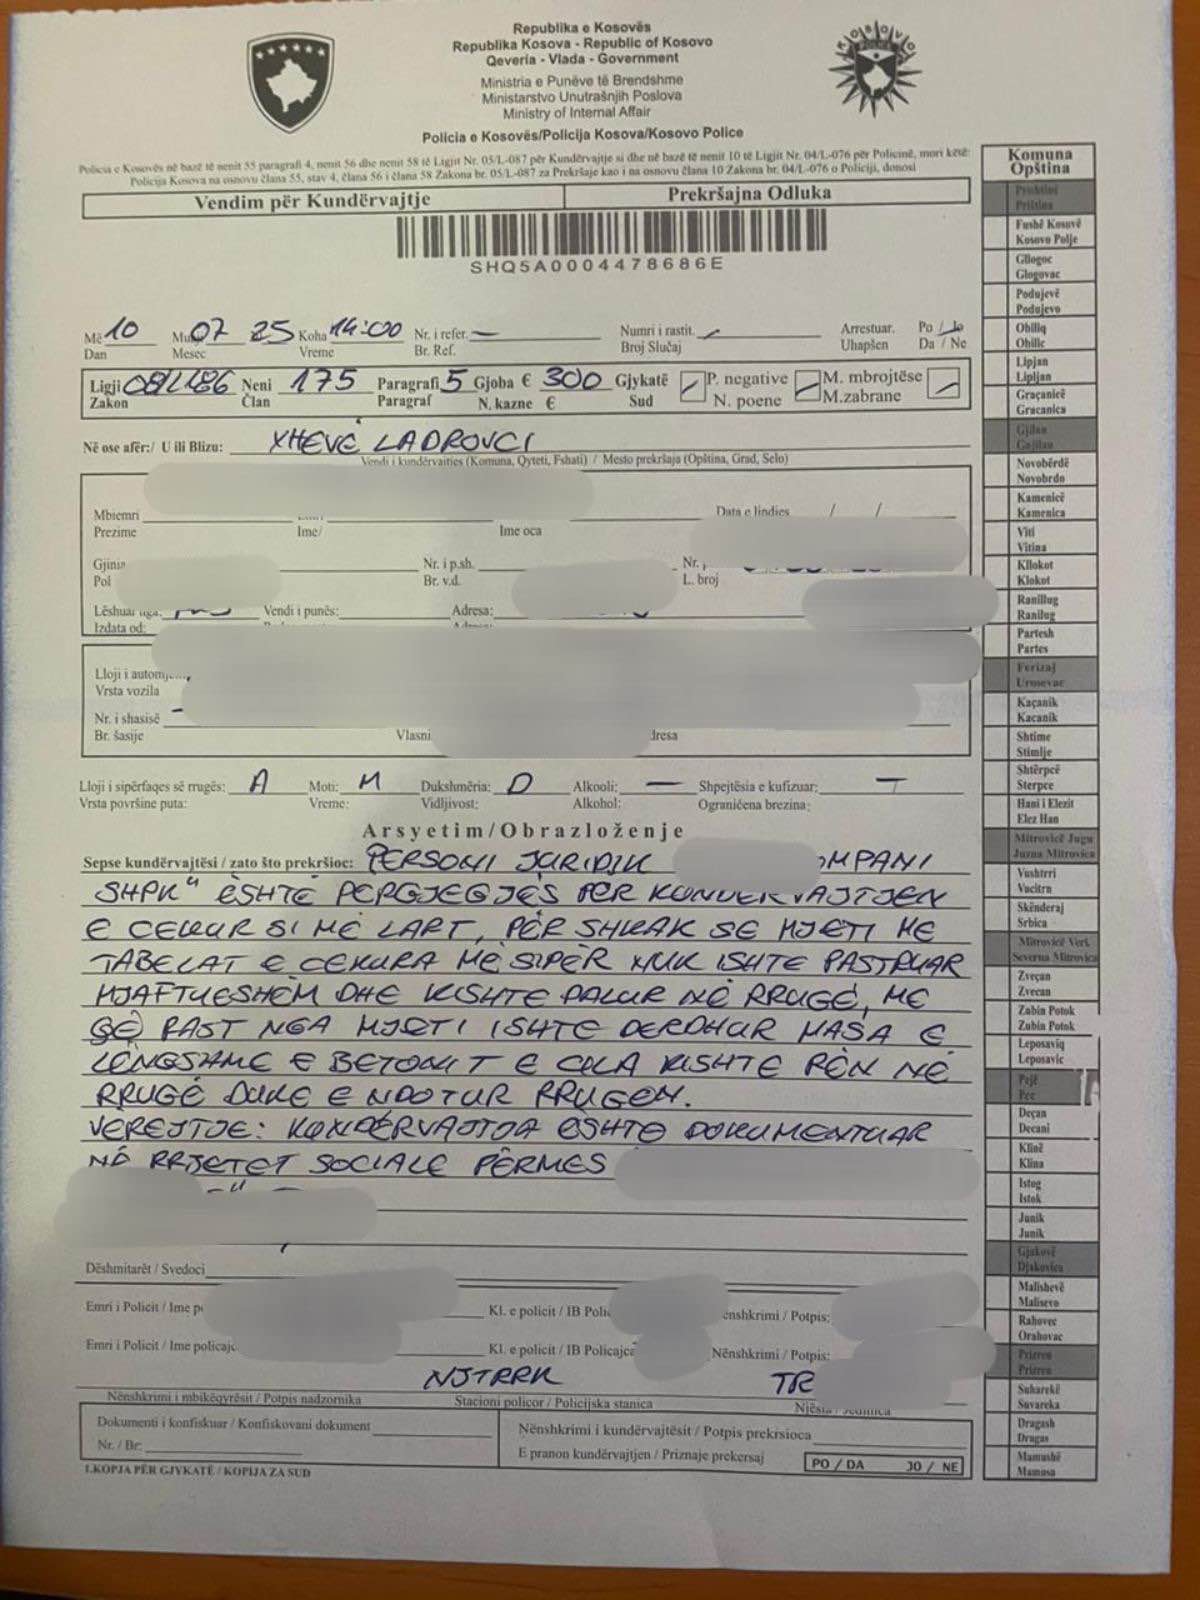 Republika e Kosovës
Republika Kosova - Republic of Kosovo
Qeveria - Vlada - Government
Ministria e Punëve të Brendshme
Ministarstvo Unutrašnjih Poslova
Ministry of Internal Affair
Policia e Kosovës/Policija Kosova/Kosovo Police
Policia e Kosovës në bazë të nenit 55 paragrafi 4, nenit 56 dhe nenit 58 të Ligjit Nr. 05/L-087 për Kundërvajtje si dhe në bazë të nenit 10 të Ligjit Nr. 04/L-076 për Policinë, mori këtë:
Policija Kosova na osnovu člana 55, stav 4, člana 56 i člana 58 Zakona br. 05/L-087 za Prekršaje kao i na osnovu člana 10 Zakona br. 04/L-076 o Policiji, donosi
Vendim për Kundërvajtje Prekršajna Odluka
SHQ5A0004478686E
Më 10 Muaj 07 25 Koha 14:00 Nr. i refer. — Numri i rastit. Arrestuar. Po / Jo
Dan Mesec Vreme Br. Ref. Broj Slučaj Uhapšen Da / Ne
Ligji 08/L186 Neni 175 Paragrafi 5 Gjoba € 300 Gjykatë P. negative M. mbrojtëse
Zakon Član Paragraf N. kazne € Sud N. poene M.zabrane
Në ose afër:/ U ili Blizu: XHEVË LADROVCI
Vendi i kundërvajties (Komuna, Qyteti, Fshati) / Mesto prekršaja (Opština, Grad, Selo)
Mbiemri Data e lindies / /
Prezime Ime/ Ime oca
Gjinia Nr. i p.sh. Nr.
Pol Br. v.d. L. broj
Lëshuar nga: Vendi i punës: Adresa:
Izdata od:
Lloji i automj
Vrsta vozila
Nr. i shasisë
Br. šasije Vlasni
Lloji i sipërfaqes së rrugës: A Moti: M Dukshmëria: D Alkooli: — Shpejtësia e kufizuar:
Vrsta površine puta: Vreme: Vidljivost: Alkohol: Ograničena brezina:
Arsyetim/Obrazloženje
Sepse kundërvajtësi / zato što prekršioc: PERSONI JURIDIK OMPANI
SHPK" ËSHTË PERGJEGJËS PËR KUNDERVAJTJEN
E CEKUR SI MË LART, PËR SHKAK SE MJETI ME
TABELAT E CEKURA MË SIPËR NUK ISHTE PASTRUAR
MJAFTUESHËM DHE KISHTE DALUR NË RRUGË, ME
Ç'RAST NGA MJETI ISHTE DERDHUR MASA E
LËNGSHME E BETONIT E CILA KISHTE RËN NË
RRUGË DUKE E NDOTUR RRUGEN.
VËREJTJE: KUNDËRVAJTJA ËSHTË DOKUMENTUAR
NË RRJETET SOCIALE PËRMES
Dëshmitarët / Svedoci
Emri i Policit / Ime Kl. e policit / IB Polic enshkrimi / Potpis:
Emri i Policit / Ime policajc Kl. e policit / IB Policajca Nënshkrimi / Potpis:
NJTRRK TR
Nënshkrimi i mbikëqyrësit / Potpis nadzornika Stacioni policor / Policijska stanica Njësia / Jedinica
Dokumenti i konfiskuar / Konfiskovani dokument
Nr. / Br:
Nënshkrimi i kundërvajtësit / Potpis prekrsioca
E pranon kundërvajtjen / Priznaje prekersaj PO / DA JO / NE
1.KOPJA PËR GJYKATË / KOPIJA ZA SUD
Komuna
Opština
Prishtinë
Priština
Fushë Kosovë
Kosovo Polje
Gllogoc
Glogovac
Podujevë
Podujevo
Obiliq
Obilic
Lipjan
Lipljan
Graçanicë
Gracanica
Gjilan
Gnjilan
Novobërdë
Novobrdo
Kamenicë
Kamenica
Viti
Vitina
Kllokot
Klokot
Ranillug
Ranilug
Partesh
Partes
Ferizaj
Urosevac
Kaçanik
Kacanik
Shtime
Stimlje
Shtërpcë
Sterpce
Hani i Elezit
Elez Han
Mitrovicë Jugu
Juzna Mitrovica
Vushtrri
Vucitrn
Skënderaj
Srbica
Mitrovicë Veri.
Severna Mitrovica
Zveçan
Zvecan
Zubin Potok
Zubin Potok
Leposaviq
Leposavic
Pejë
Pec
Deçan
Decani
Klinë
Klina
Istog
Istok
Junik
Junik
Gjakovë
Djakovica
Malishevë
Malisevo
Rahovec
Orahovac
Prizren
Prizren
Suharekë
Suvareka
Dragash
Dragas
Mamushë
Mamusa